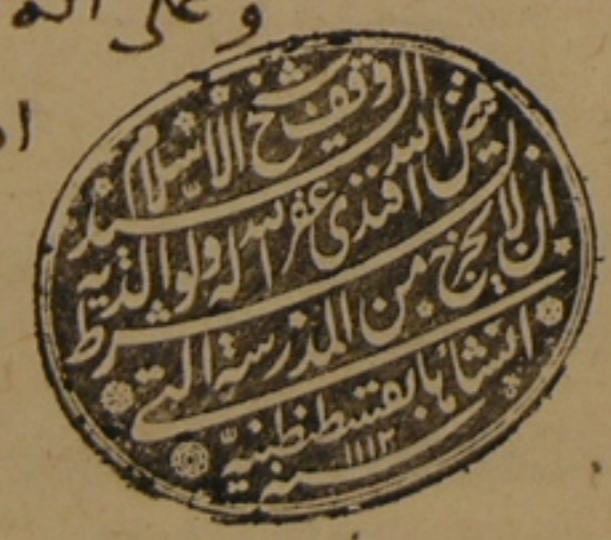 وعلى اله
وقف شيخ الاسلام
السيد فيض الله افندى غفر الله له ولوالديه
بشرط ان لا يخرج من المدرسة التى
انشأها بقسطنطنيه
سنه ١١١٣